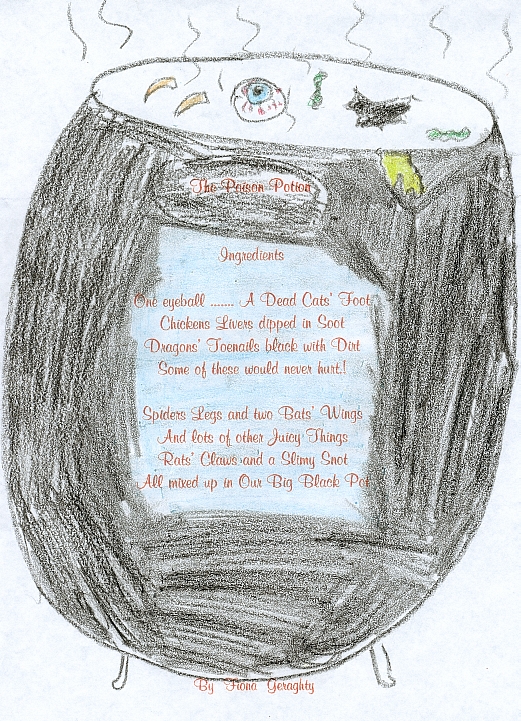 The Poison Potion
Ingredients
One eyeball ....... A Dead Cats' Foot
Chickens Livers dipped in Soot
Dragons' Toenails black with Dirt
Some of these would never hurt!
Spiders Legs and two Bats' Wings
And lots of other Juicy Things
Rats' Claws and a Slimy Snot
All mixed up in Our Big Black Pot
By Fiona Geraghty